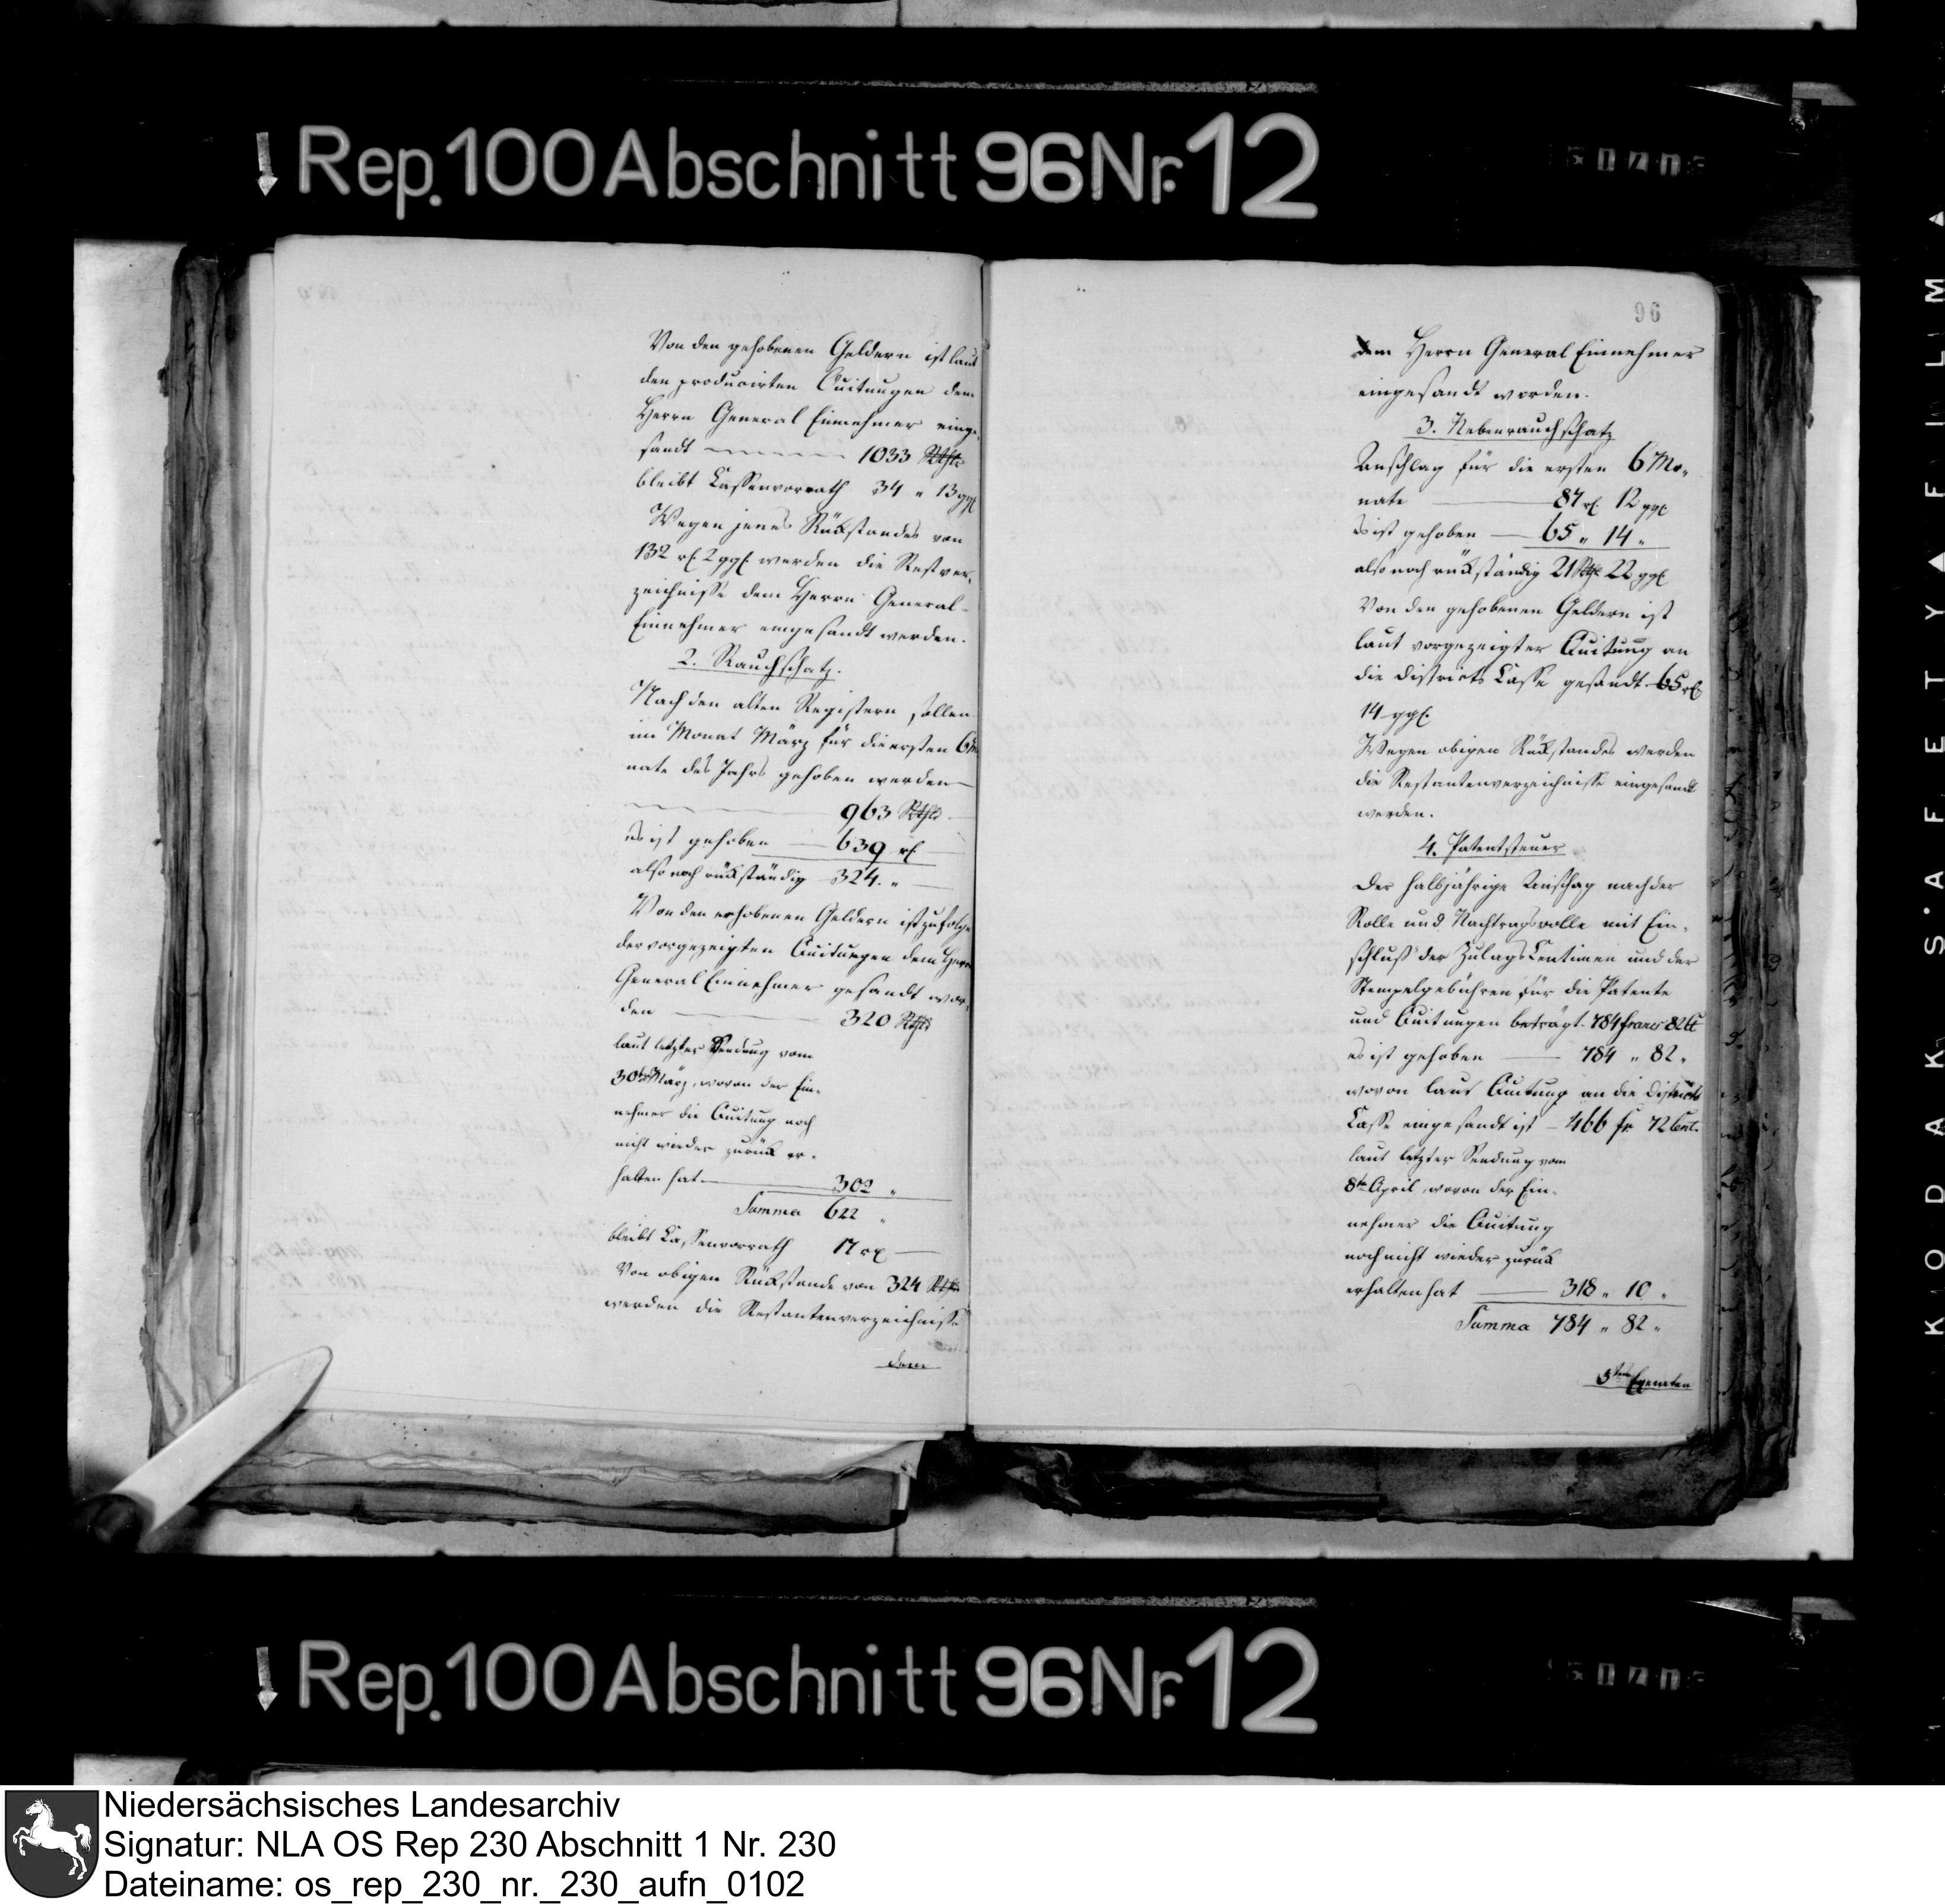 Rep. 100 Abschnitt 96 Nr. 12
Von den gehobenen Geldern ist laut
den producirten Quitungen dem
Herrn General Einnehmer einge-
sandt 1033 Rthlr
bleibt Cassenvorrath 34 " 13 ggl
Wegen jenes Rückstandes von
132 rl. 2 ggl. werden die Restver-
zeichnisse dem Herrn General-
Einnehmer eingesandt werden.
2. Rauchschatz.
Nach den alten Registern sollen
im Monat März für die ersten 6 Mo
nate des Jahrs gehoben werden
963 Rthlr
es ist gehoben 639 rl
also noch rückständig 324. "
Von den erhobenen Geldern ist zufolge
der vorgezeigten Quitungen dem Herrn
General Einnehmer gesandt wor-
den 320 Rthlr
laut letzter Sendung vom
30ten März, wovon der Ein-
nehmer die Quitung noch
nicht wieder zurück er-
halten hat 302 "
Summa 622 "
bleibt Cassenvorrath 17 rl
Von obigen Rückstande von 324 Rthlr
werden die Restantenverzeichnisse
dem
96
dem Herrn General Einnehmer
eingesandt worden.
3. Nebenrauchschatz
Anschlag für die ersten 6 Mo-
nate 87 rl. 12 ggl.
Es ist gehoben 65 " 14 "
also noch rückständig 21 Rthlr 22 ggl
Von den gehobenen Geldern ist
laut vorgezeigter Quitung an
die Districts Casse gesandt 65 rl
14 ggl.
Wegen obigen Rückstandes werden
die Restantenverzeichnisse eingesandt
werden.
4. Patentsteuer
Der halbjährige Anschag nach der
Rolle und Nachtragsrolle mit Ein-
schluß der Zulags Centimen und der
Stempelgebühren für die Patente
und Quitungen beträgt 784 francs 82 Ct
es ist gehoben 784 " 82 "
wovon laut Quitung an die Districts
Casse eingesandt ist 466 fr 72 Cent.
laut letzter Sendung vom
8ten April, wovon der Ein-
nehmer die Quitung
noch nicht wieder zurück
erhalten hat 318 " 10 "
Summa 784 " 82 "
Rep. 100 Abschnitt 96 Nr. 12
KODAK S.AFETY FILM
Niedersächsisches Landesarchiv
Signatur: NLA OS Rep 230 Abschnitt 1 Nr. 230
Dateiname: os_rep_230_nr._230_aufn_0102